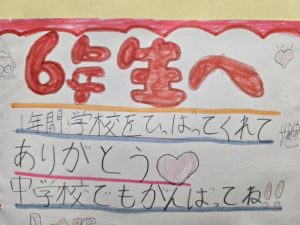 6年生へ
1年間学校をひっぱってくれて
ありがとう♡
中学校でもがんばってね!!